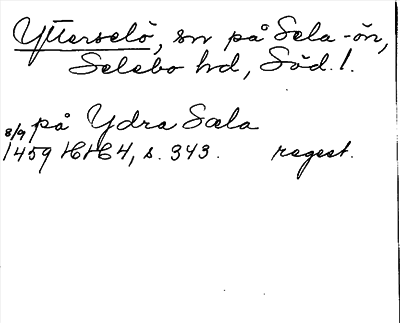 Ytterselö, sn på Sela-ön,
Selebo hd, Söd. l.
på Ydra Sæla
8/9 1459 HH 4, s. 343. regest.